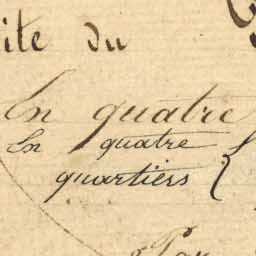 ite du
En quatre
En quatre
quartiers